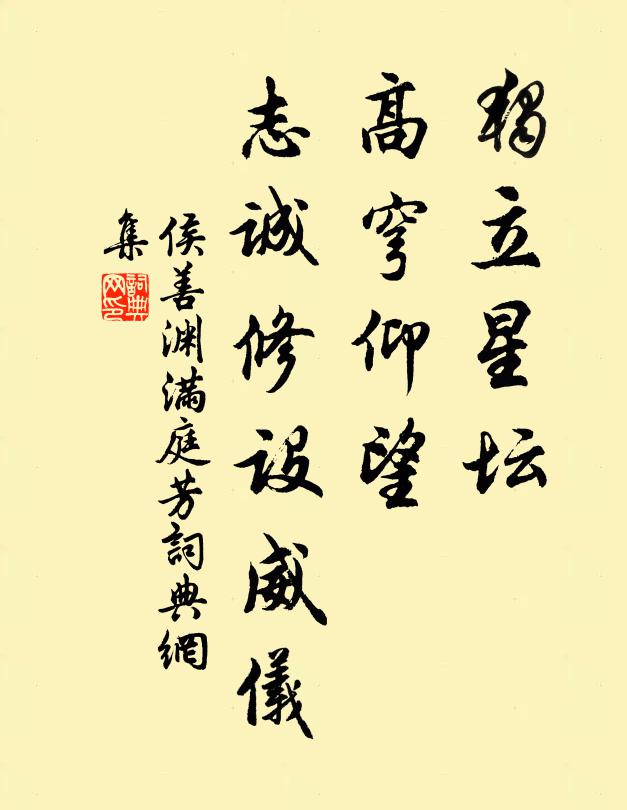 獨立星坛
高穹仰望
志誠修設威儀
侯善渊滿庭芳詞典網
集
詞典
网印